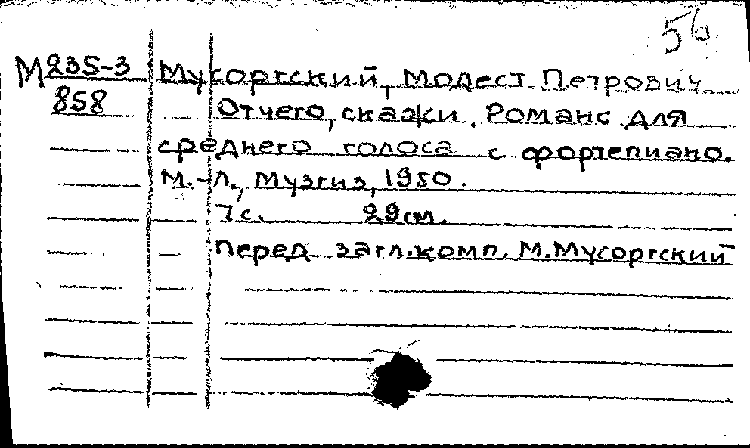 56
М 235-3 Мусоргский, Модест Петрович
858 Отчего, скажи. Романс для
среднего голоса с фортепиано.
М.-Л., Музгиз, 1950.
7с. 29см.
Перед загл. комп. М. Мусоргский